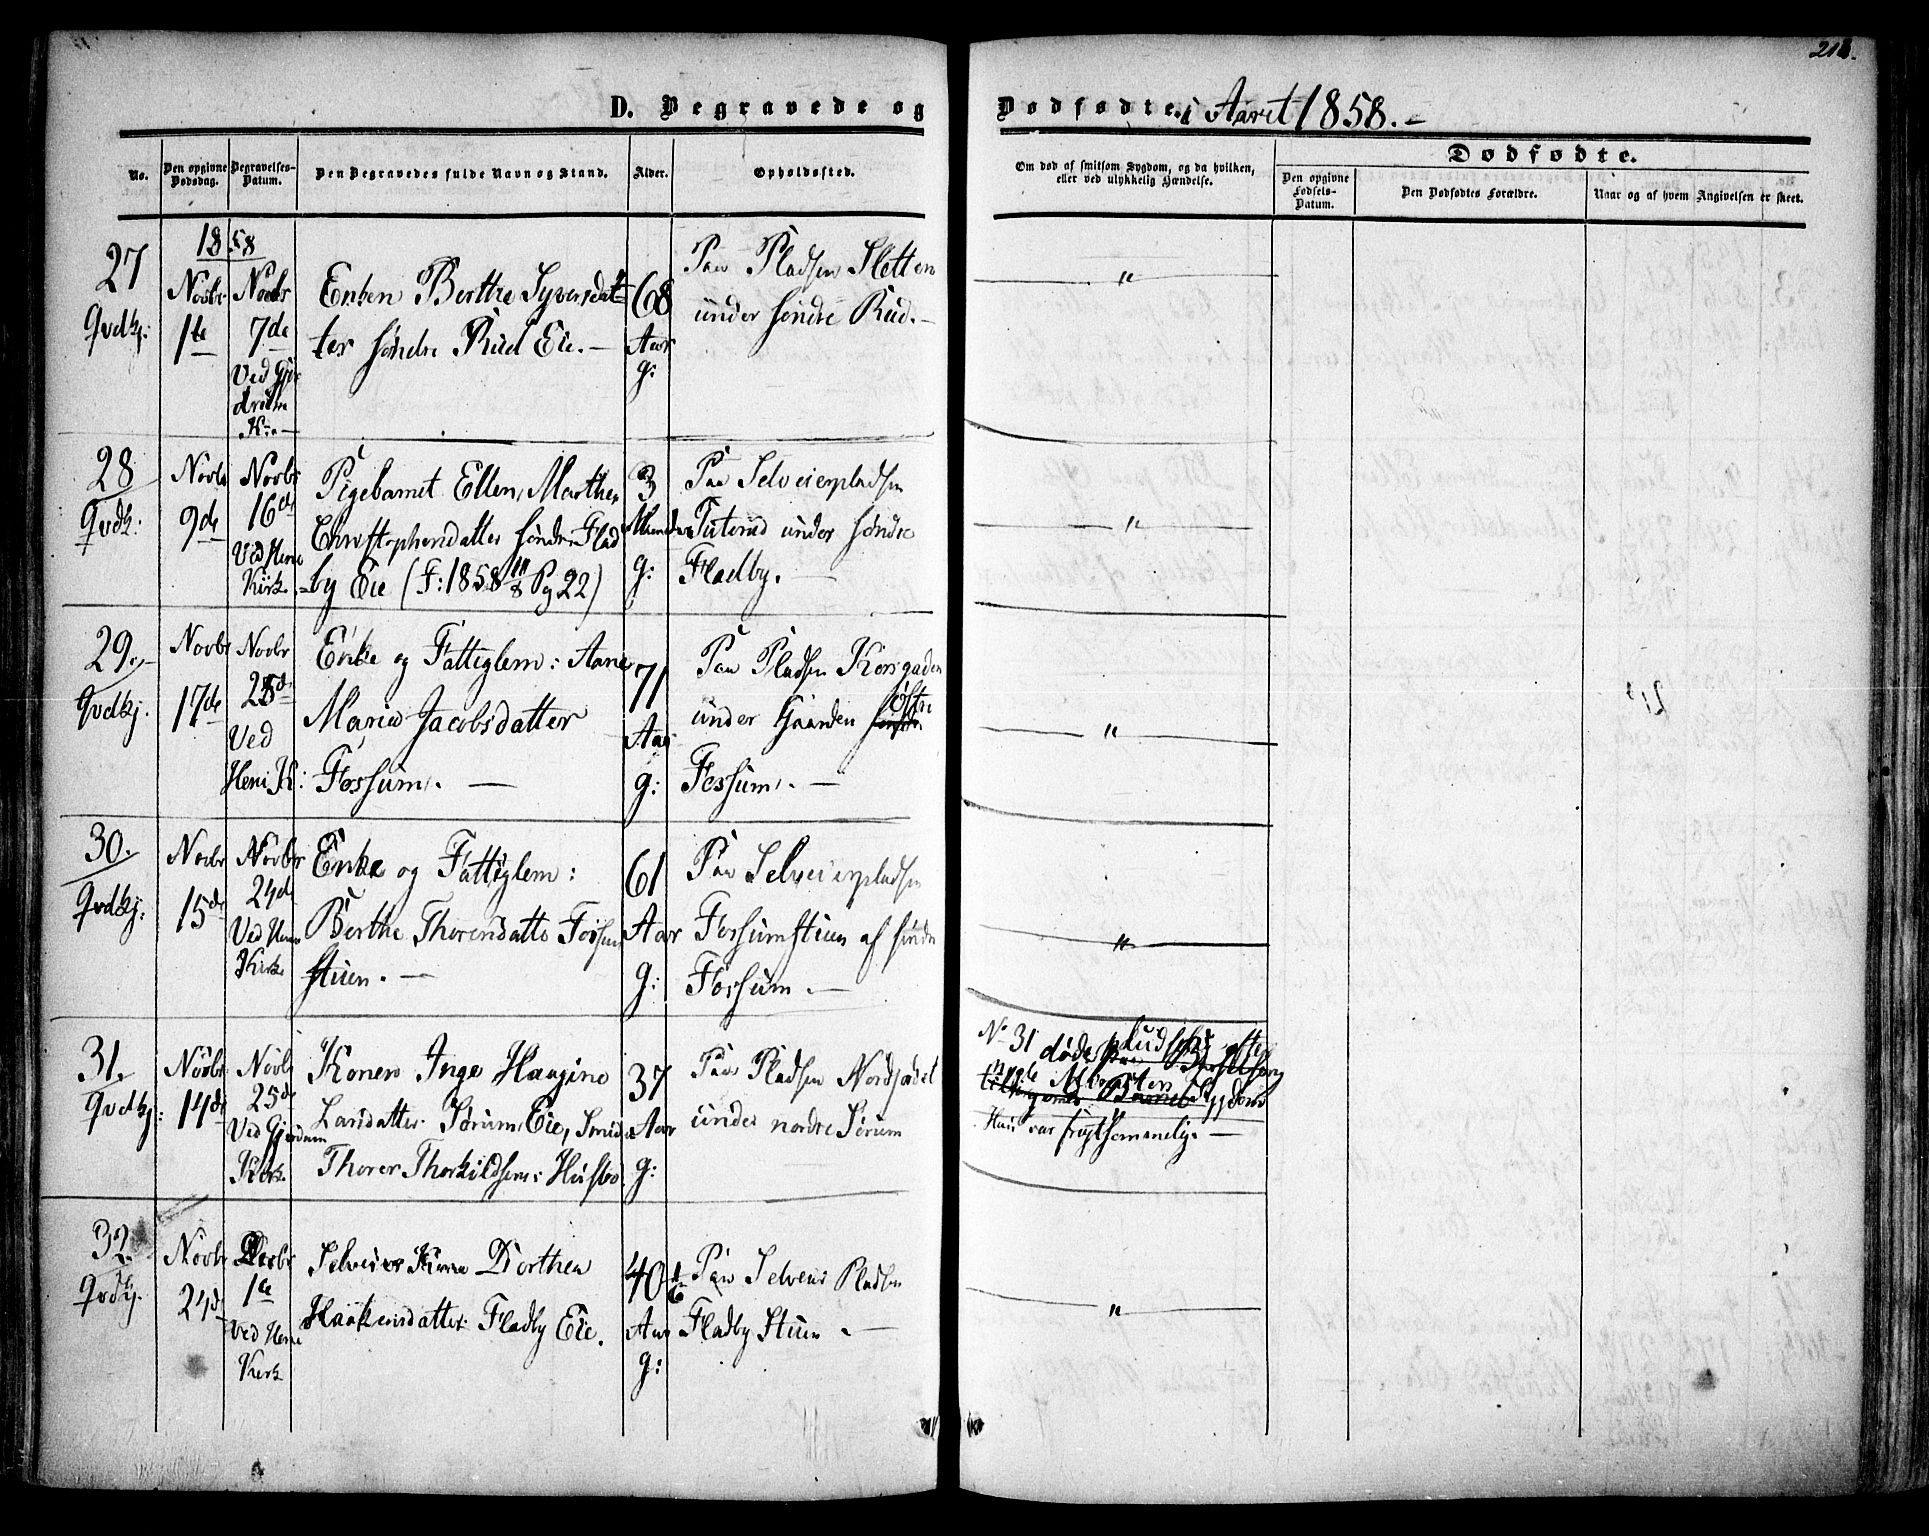 218.
D. Begravede og Dødfødte. i Aaret 1858.-
No.
Den opgivne Dødsdag.
Begravelses-Datum.
Den Begravedes fulde Navn og Stand.
Alder.
Opholdssted.
Om død af smitsom Sygdom, og da hvilken,
eller ved ulykkelig Hændelse.
Dødfødte.
Den opgivne Fødsels-Datum.
Den Dødfødtes Forældre.
Naar og af hvem Angivelsen er skeet.
1858
27
Qvdkj:
Novbr
1te
Novbr
7de
Ved Gjer
drum
K:
Enken Berthe Syversdat-
ter søndre Rud Eie.-
68
Aar
g:
Paa Pladsen Sletten
under søndre Rud.-
"
28
Qvdk:
Novbr
9de
Novbr
16de
Ved Heni
Kirk.
Pigebarnet Ellen Marthea
Christophersdatter søndre Flad
=by Eie (F: 1858 18/8 Pg 22)
3
Maaneder
g:
Paa Selveierpladsen
Tuterud under søndre
Fladby. -
"
29.
Qvdkj.
Novbr
17de
Novbr
25de
Ved
Heni K:
Enke og Fattiglem: Anne
Maria Jacobsdatter
Fossum. -
71
Aar
g:
Paa Pladsen Korsgaden
østre
under Gaarden søndre
Fossum. -
"
30.
Qvdkj:
Novbr
15de
Novbr
24de
Ved Heni
Kirke
Enke og Fattiglem:
Berthe Thorersdatter Fossum
stuen. -
61
Aar
g:
Paa Selveierpladsen
Fossumstuen af søndre
Fossum. -
"
31.
Qvdkj:
Novbr
14de
Novbr
25de
Ved Gjerdrum
Kirk.
Konen Inge Haagine
Larsdatter Sørum Eie, Smed
Thorer Thorkildsens Hustro
37
Aar
g:
Paa Pladsen Nordjordet
under nordre Sørum
No 31 døde pludselig efter
Barselseng
Sygdom
Hun var frugtsommelig. -
32.
Qvdkj.
Novbr
24de
Decbr
1te
Ved Heni
Kirk
Selveier Kone Dorthea
Haakensdatter Fladby Eie.
40 1/6
Aar
g:
Paa Selveier Pladsen
Fladby Stuen. -
"